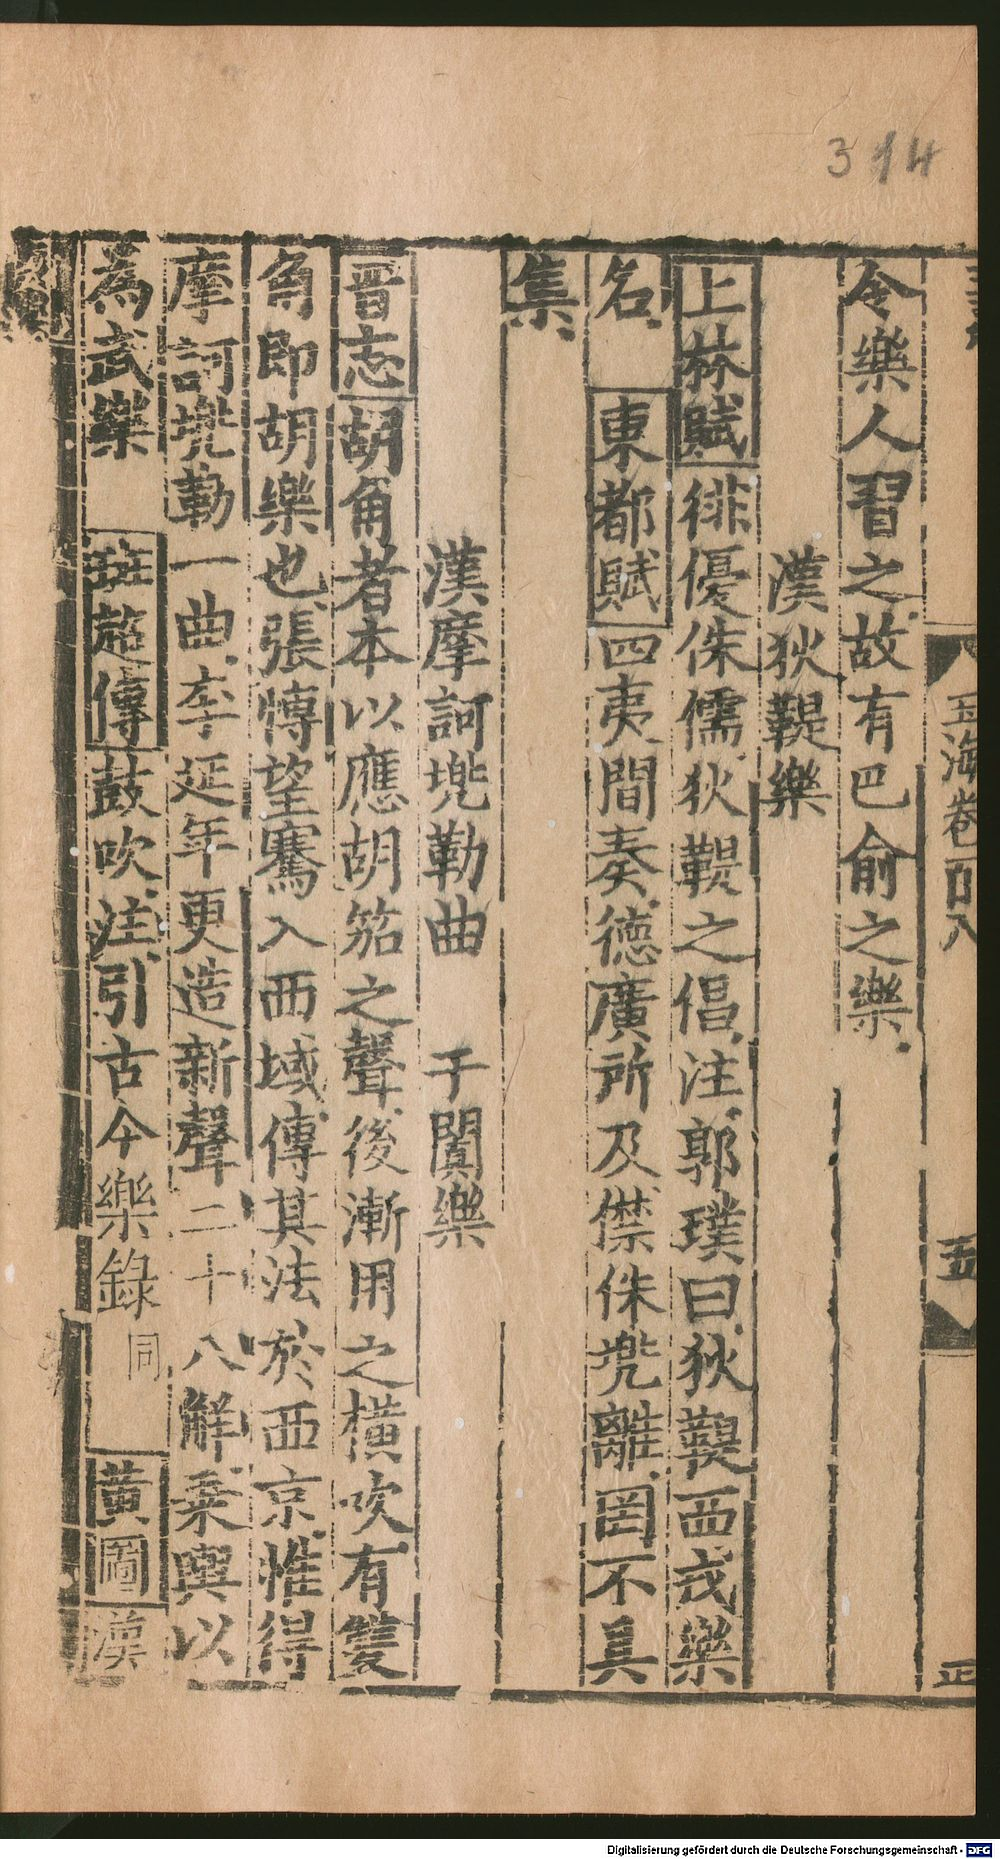 314
玉海卷一百八
五
正
令樂人習之故有巴俞之樂
漢狄鞮樂
上林賦徘優侏儒狄鞮之倡注郭璞曰狄鞮西戎樂
名東都賦四夷間奏德廣所及僸侏兠離罔不具
集
漢摩訶兠勒曲 于闐樂
晋志胡角者本以應胡笳之聲後漸用之橫吹有雙
角即胡樂也張愽望騫入西域傳其法於西京惟得
摩訶兠勒一曲李延年更造新聲二十八解乗輿以
為武樂 班超傳鼓吹注引古今樂錄同 黄圖漢
Digitalisierung gefördert durch die Deutsche Forschungsgemeinschaft - DFG